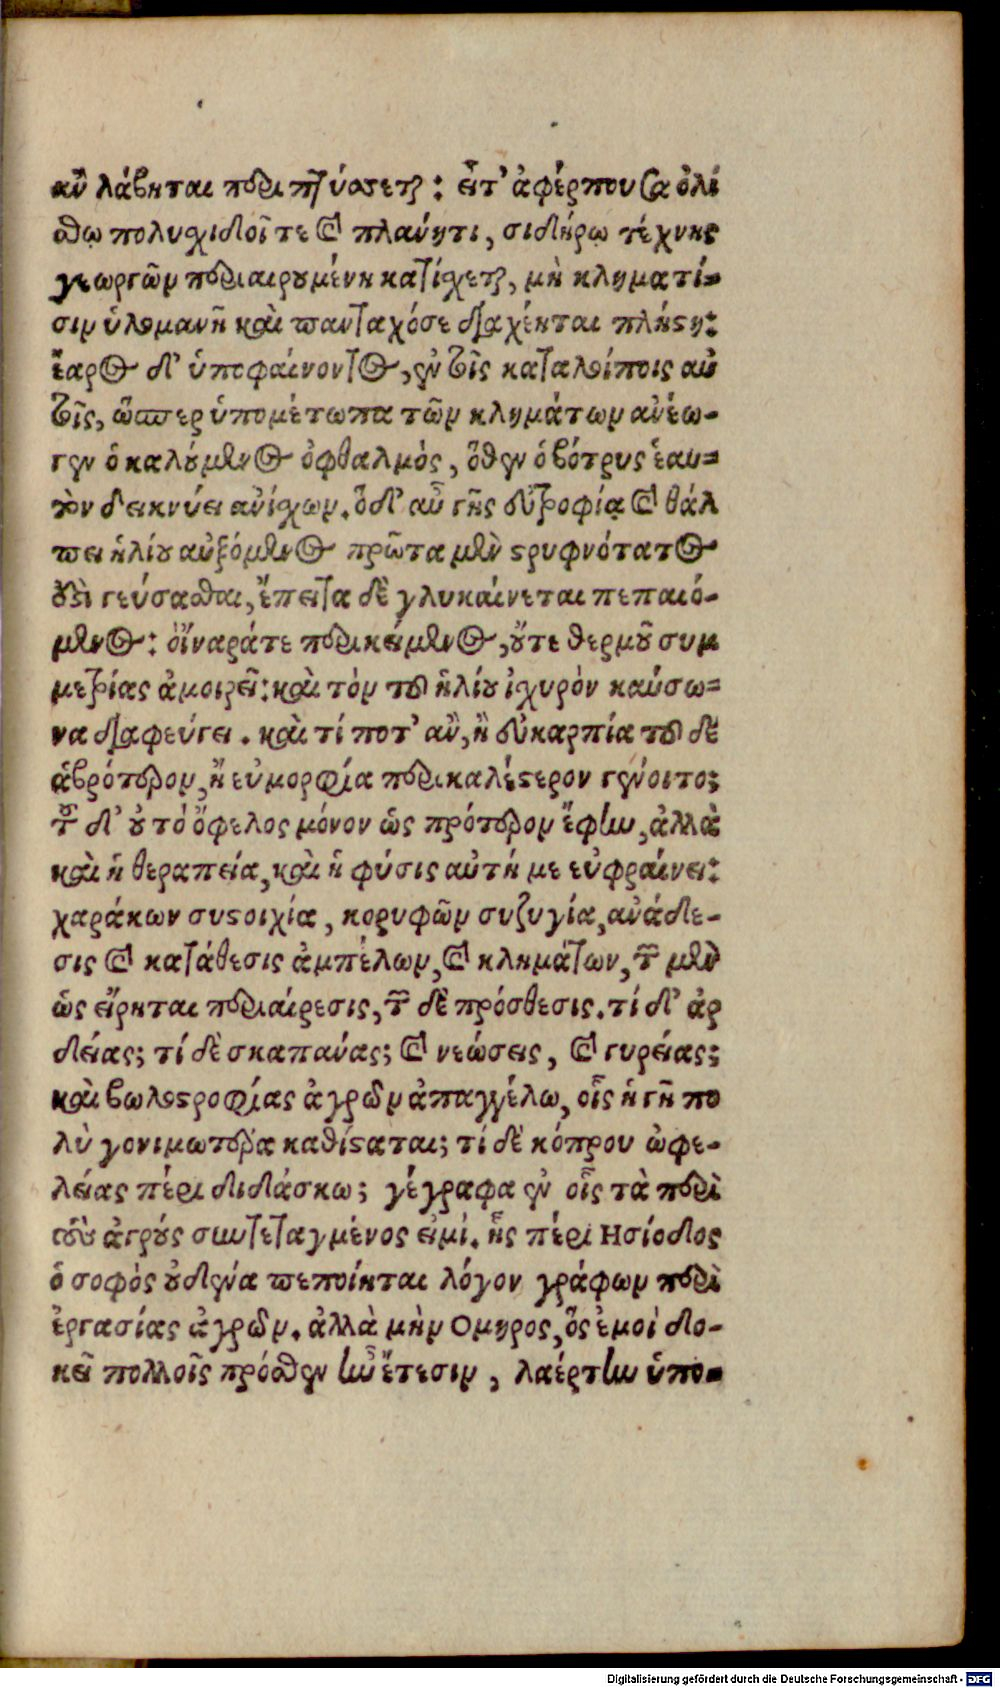 ἂν λάβηται περιπτύσσεται: εἶτ' ἀφέρπουσα ὀλί
σθῳ πολυσχιδοῖ τε καὶ πλανήτι, σιδήρῳ τέχνης
γεωργῶν περιαιρουμένη κατίσχεται, μὴ κληματί-
σιν ὑλομανῇ καὶ πανταχόσε διαχέηται πλήςη:
ἔαρος δ' ὑποφαίνοντος, ἐν τοῖς καταλοίποις αὖ
τοῖς, ὥσπερ ὑπομέτωπα τῶν κλημάτων ἀνέω-
γεν ὁ καλούμενος ὀφθαλμὸς, ὅθεν ὁ βότρυς ἑαυ-
τὸν δεικνύει ἀνίσχων. ὁ δ' αὖ γῆς εὐτροφίᾳ καὶ θάλ
πει ἡλίου αὐξόμενος πρῶτα μὲν στρυφνότατος
ἐστι γεύσασθαι, ἔπειτα δὲ γλυκαίνεται πεπαιό-
μενος: οἴναρά τε περικείμενος, οὔτε θερμοῦ συμ
μετρίας ἀμοιρεῖ: καὶ τὸν τοῦ ἡλίου ἰσχυρὸν καύσω-
να διαφεύγει. καὶ τί ποτ' ἂν, ἢ εὐκαρπία τοῦ δὲ
ἁβρότερον, ἢ εὐμορφία περικαλέστερον γένοιτο;
τοῦ δ' οὐ τὸ ὄφελος μόνον ὡς πρότερον ἔφην, ἀλλὰ
καὶ ἡ θεραπεία, καὶ ἡ φύσις αὐτή με εὐφραίνει:
χαράκων συστοιχία, κορυφῶν συζυγία, ἀνάδε-
σις καὶ κατάθεσις ἀμπέλων, καὶ κλημάτων, τῶν μὲν
ὡς εἴρηται περιαίρεσις, τῶν δὲ πρόσθεσις. τί δ' ἀρ
δείας; τί δὲ σκαπάνας; καὶ νεώσεις, καὶ γυρείας;
καὶ βωλοστροφίας ἀγρῶν ἀπαγγέλω, οἷς ἡ γῆ πο
λὺ γονιμωτέρα καθίσταται; τί δὲ κόπρου ὠφε-
λείας πέρι διδάσκω; γέγραφα ἐν οἷς τὰ περὶ
τοὺς ἀγροὺς συντεταγμένος εἰμί. ἧς πέρι Ησίοδος
ὁ σοφὸς οὐδένα πεποίηται λόγον γράφων περὶ
ἐργασίας ἀγρῶν. ἀλλὰ μὴν Ομηρος, ὃς ἐμοὶ δο-
κεῖ πολλοῖς πρόσθεν ἦν ἔτεσιν, λαέρτην ὑπο-
Digitalisierung gefördert durch die Deutsche Forschungsgemeinschaft - DFG